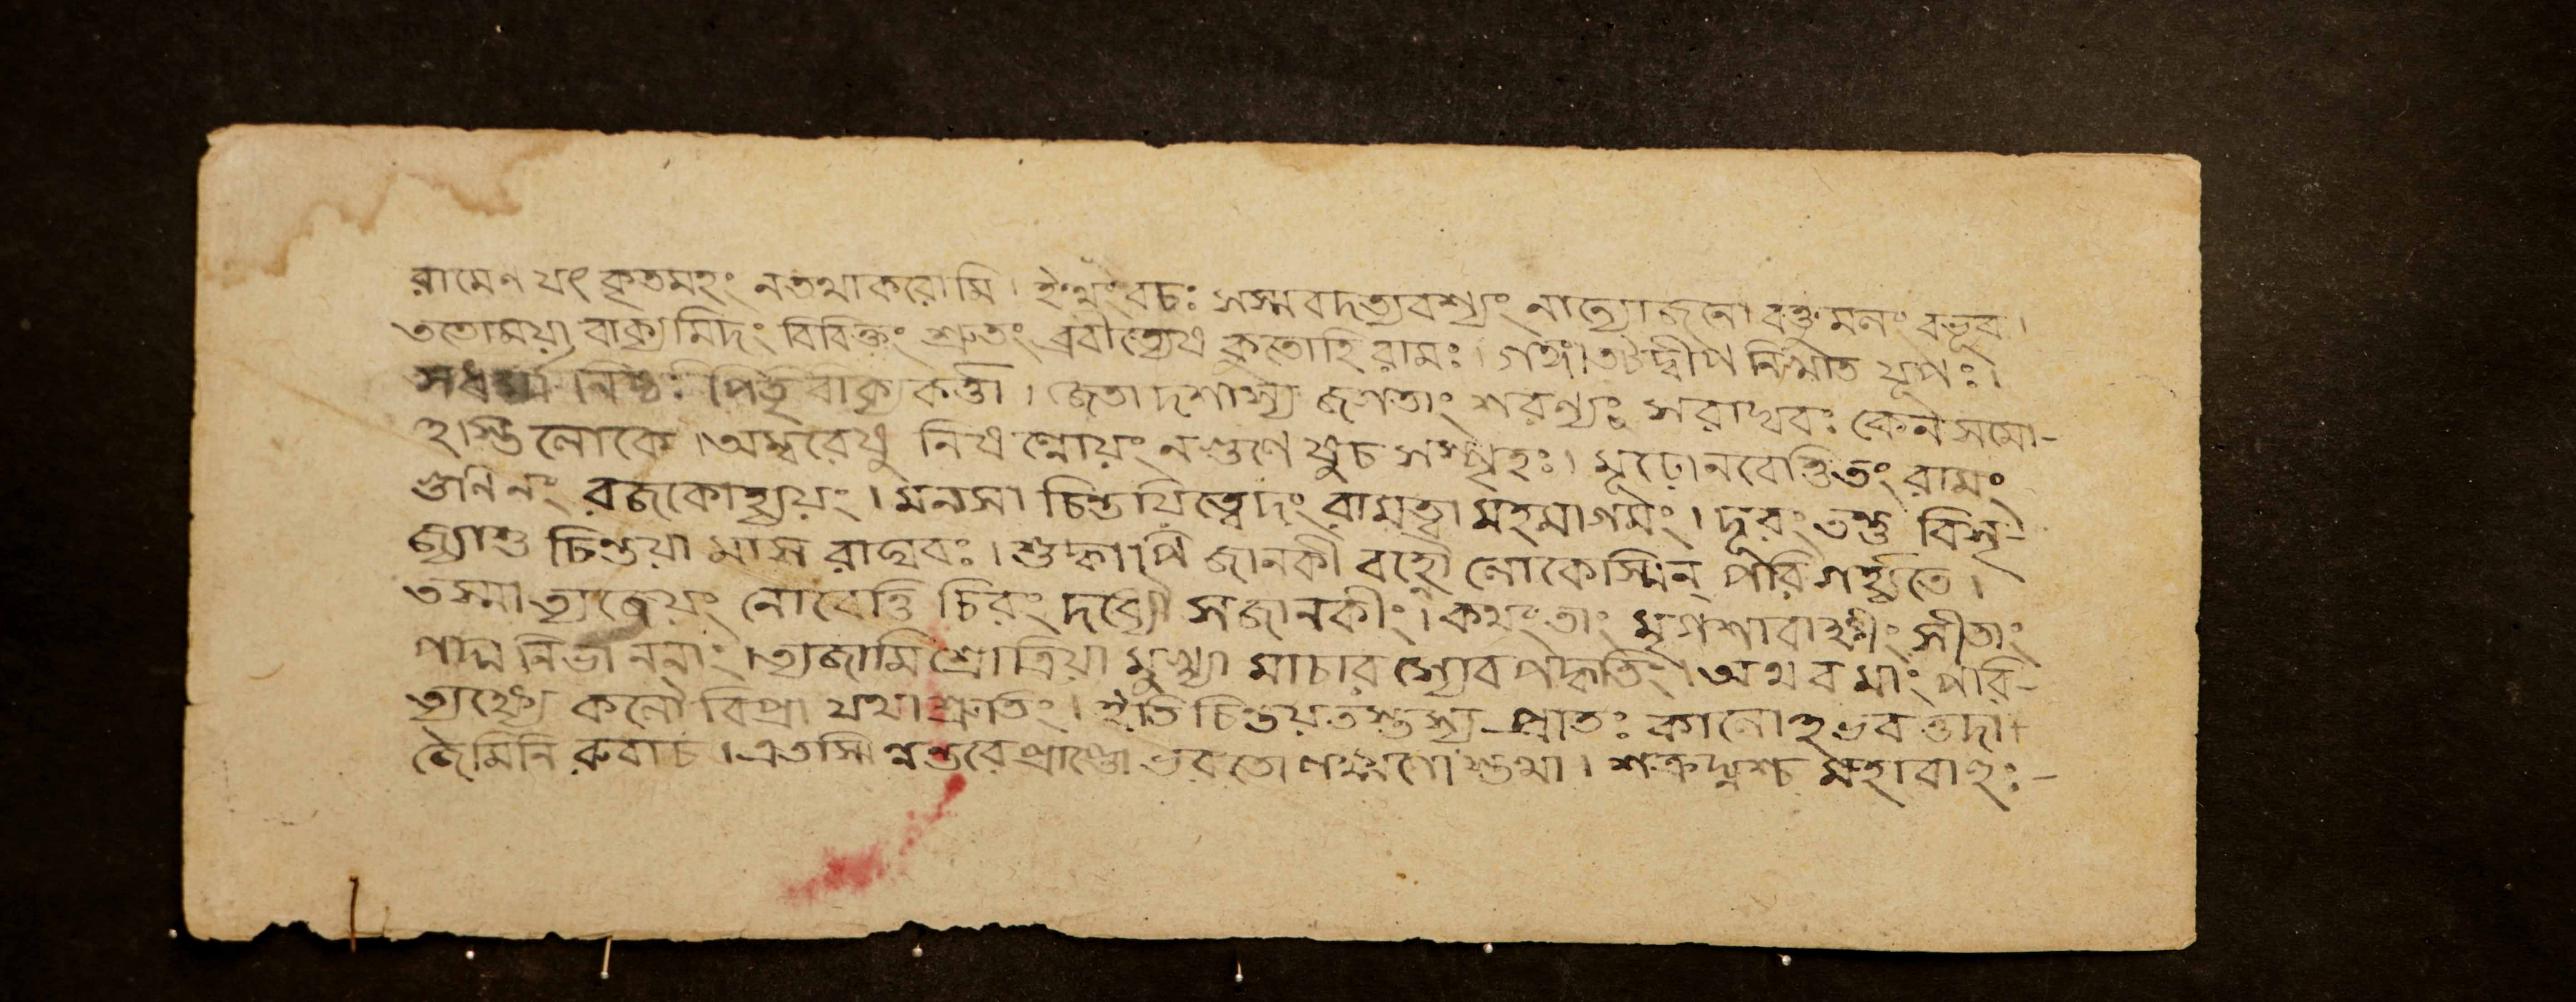 রামেণ যৎ কৃতমহং ন তথা করোমি । ইত্থং বচঃ সস্মবদত্যবশ্যং নান্যো জনো বক্তুমলং বভূব ।
ততো ময়া বাক্যমিদং বিবিক্তং শ্রুতং ব্রবীত্যেষ কুতো হি রামঃ । গঙ্গাতট দ্বীপ নিখাত যূপঃ ।
সধর্ম্ম নিষ্ঠঃ পিতৃ বাক্য কর্ত্তা । জেতা দশাস্য জগতাং শরণ্যঃ স রাঘবঃ কেন সমো-
হ্যস্তি লোকে । অম্বরেষু নিষণ্ণোয়ং ন গুণেষু চ সস্পৃহঃ । মূঢ়ো ন বেত্তি তং রামং
গুণিনং রজকোহ্যয়ং । মনসা চিন্তয়িত্বেদং রামত্বা মহমাগমং । দূরং তন্তু বিসৃ-
জ্যাশু চিন্তয়ামাস রাঘবঃ । শুদ্ধাপি জানকী বহ্নৌ লোকেস্মিন্ পরিগর্হ্যতে ।
তস্মাত্যজেয়ং নো বেত্তি চিরং দধ্যৌ স জানকীং । কথং তাং মৃগশাবাক্ষীং সীতাং
পদ্ম নিভাননাং । ত্যজামি শ্রোত্রিয়া মুখ্যা মাচারস্যেব পদ্ধতিং । অথ বমাং পরি-
ত্যক্ষ্যে কলৌ বিপ্রা যথা শ্রুতিং । ইতি চিন্তয়তস্তস্য প্রাতঃ কালোহভবত্তদা ।
জৈমিনি রুবাচ । এতস্মিন্নন্তরে প্রাপ্তো ভরতো লক্ষ্মণো স্তথা । শত্রুঘ্নশ্চ মহাবাহুঃ -